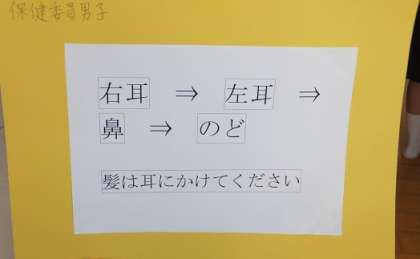 保健委員男子
右耳 ⇒ 左耳 ⇒
鼻 ⇒ のど
髪は耳にかけてください